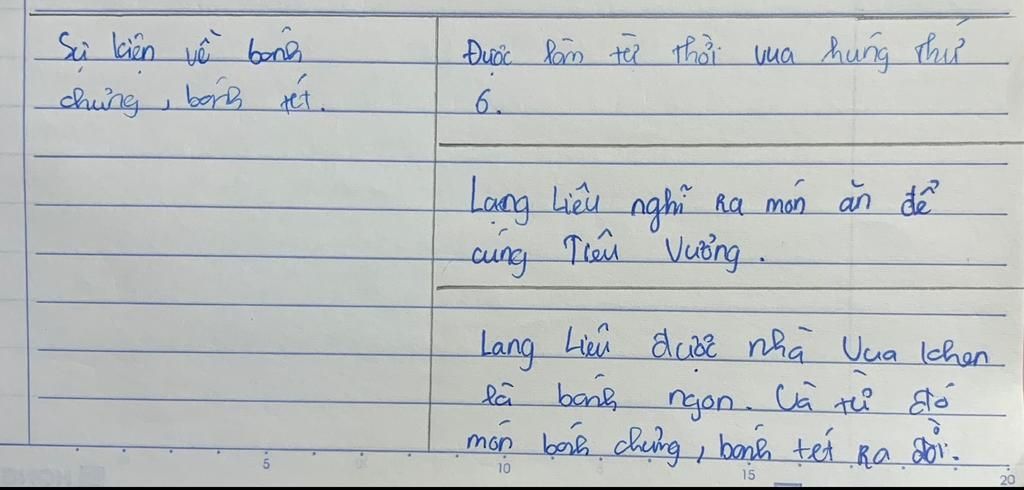 Sự kiện về bánh
chưng, bánh tét.
Được làm từ thời vua hùng thứ
6.
Lang Liêu nghĩ ra món ăn để
cúng Tiêu Vương.
Lang Liêu được nhà Vua khen
là bánh ngon. Và từ đó
món bánh chưng, bánh tét ra đời.
5 10 15 20